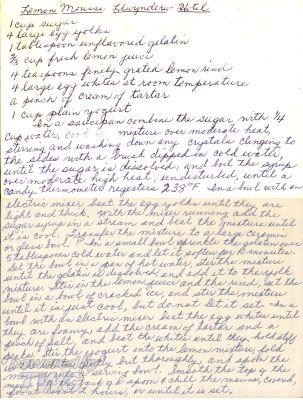 Lemon Mousse Llwynderw Hotel
1 cup sugar
4 large egg yolks
1 tablespoon unflavored gelatin
2/3 cup fresh lemon juice
4 teaspoons finely grated lemon rind
4 large egg whites at room temperature
a pinch of cream of tartar
1 cup plain yogurt
In a saucepan combine the sugar with 1/4
cup water, mixture over moderate heat,
stirring and washing down any crystals clinging to
the sides with a brush dipped in cold water
until the sugar is dissolved, and boil the syrup
over moderate high heat, undisturbed, until a
candy thermometer registers 238°F. In a bowl with an
electric mixer beat the egg yolks until they are
light and thick. With the mixer running add the
sugar syrup in a stream and beat the mixture until
it is cool. Transfer the mixture to a large ceramic
or glass bowl. In a small bowl sprinkle the gelatin over
5 tablespoons cold water and let it soften for 10 minutes.
Set the bowl in a pan of hot water, stir the mixture
until the gelatin is dissolved, and add it to the yolk
mixture. Stir in the lemon juice and the rind, set the
bowl in a bowl of cracked ice, and stir the mixture
until it is just cool, but do not let it set. In a
bowl with an electric mixer beat the egg whites until
they are foamy, add the cream of tartar and a
pinch of salt, and beat the whites until they hold stiff
peaks. Stir the yogurt into the lemon mixture, fold
in the whites gently but thoroughly, and spoon the
mousse into a serving bowl. Smooth the top of the
mousse with the back of a spoon & chill the mousse, covered,
for at least 2 hours, or until it is set.